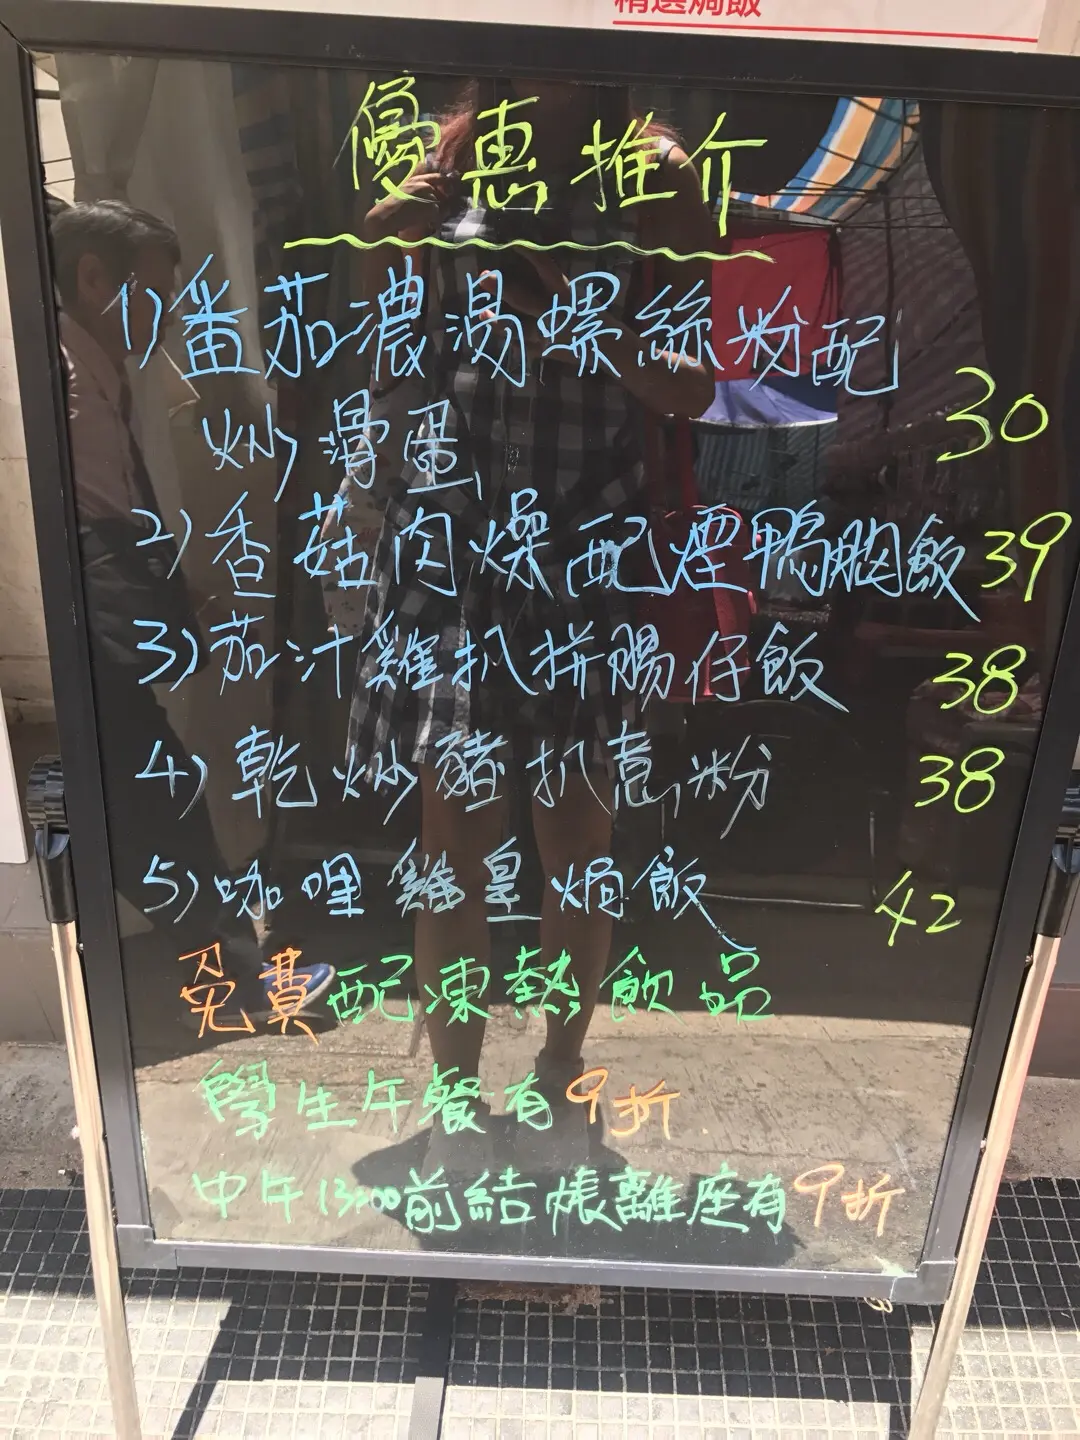 精選焗飯
優惠推介
1)番茄濃湯螺絲粉配
炒滑蛋 30
2)香菇肉燥配煙鴨胸飯 39
3)茄汁雞扒拼腸仔飯 38
4)乾炒豬扒意粉 38
5)咖哩雞皇焗飯 42
免費配凍熱飲品
學生午餐有9折
中午13:00前結帳離座有9折